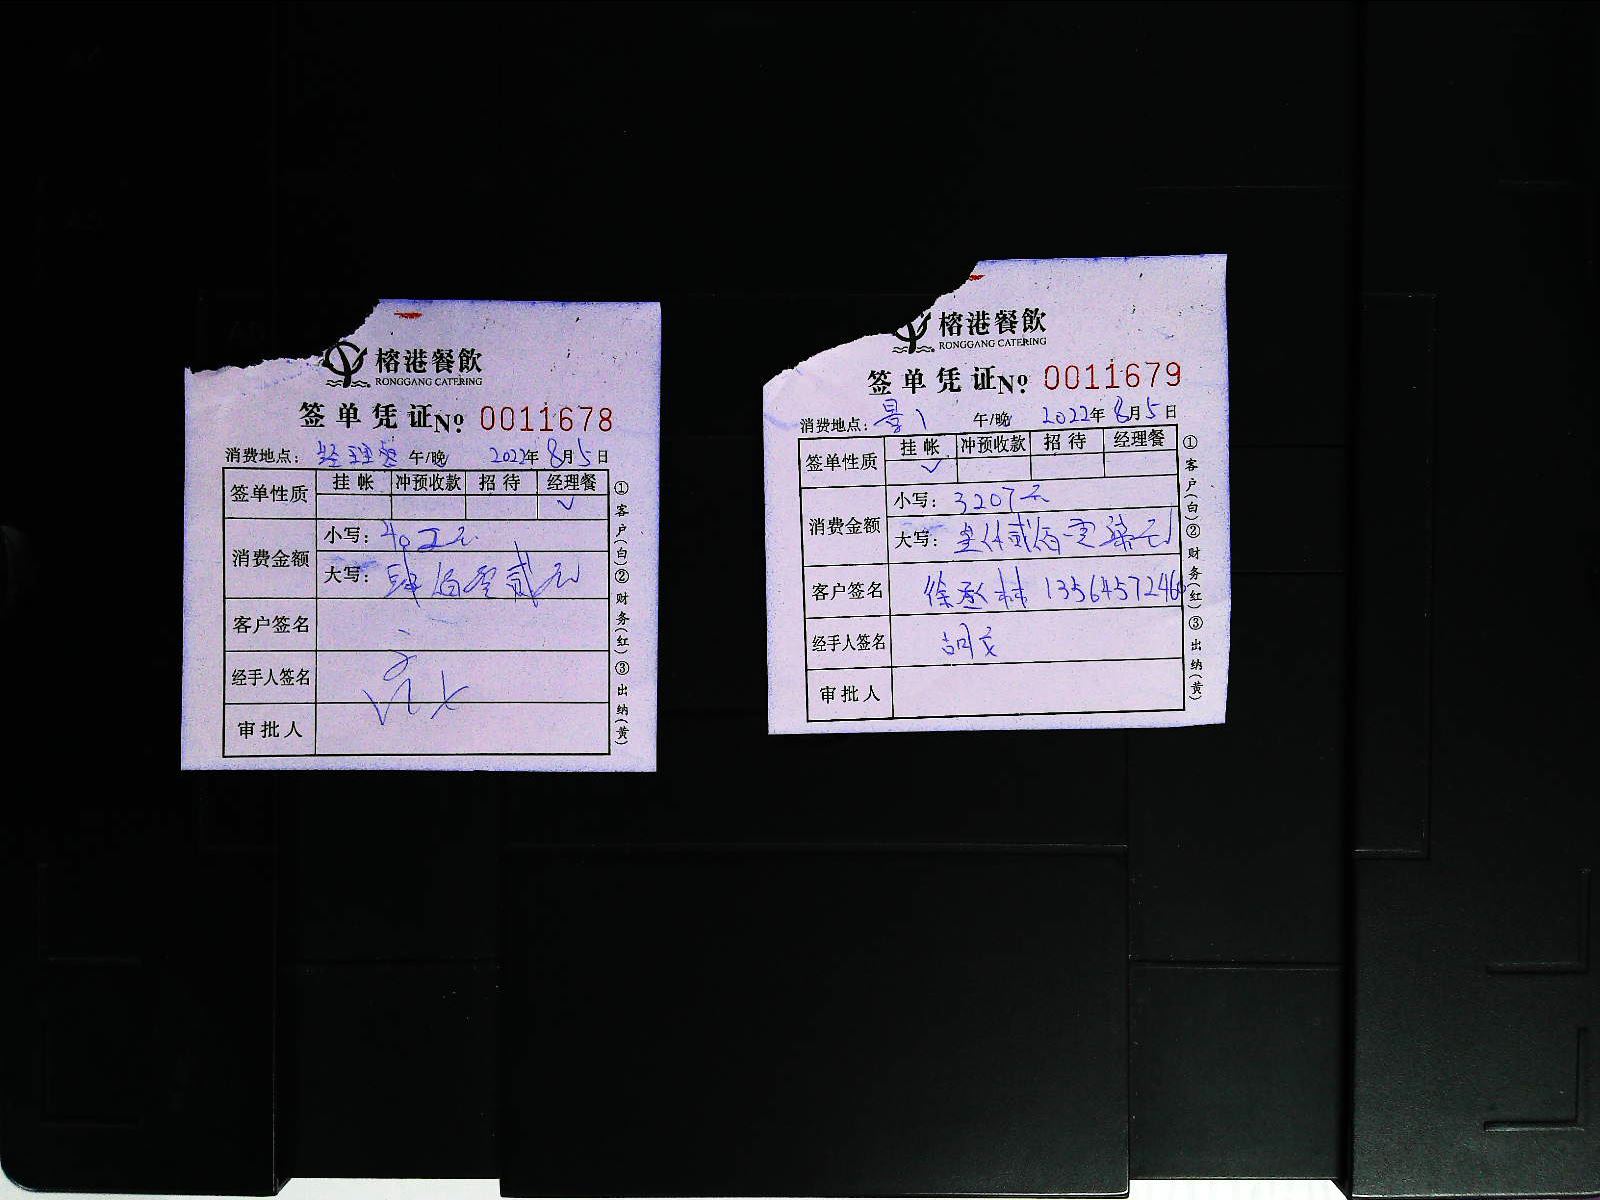 榕港餐飲
RONGGANG CATERING
签单凭证 No 0011678
消费地点：经理餐 午/晚 2022年8月5日
签单性质 挂帐 冲预收款 招待 经理餐
√
消费金额
小写：
大写：肆佰零贰元
客户签名
经手人签名
审批人
①客户(白)②财务(红)③出纳(黄)
榕港餐飲
RONGGANG CATERING
签单凭证 No 0011679
消费地点： 午/晚 2022年8月5日
签单性质 挂帐 冲预收款 招待 经理餐
√
消费金额
小写：3207元
大写：仟贰佰零柒元
客户签名 徐 林
经手人签名 胡
审批人
①客户(白)②财务(红)③出纳(黄)